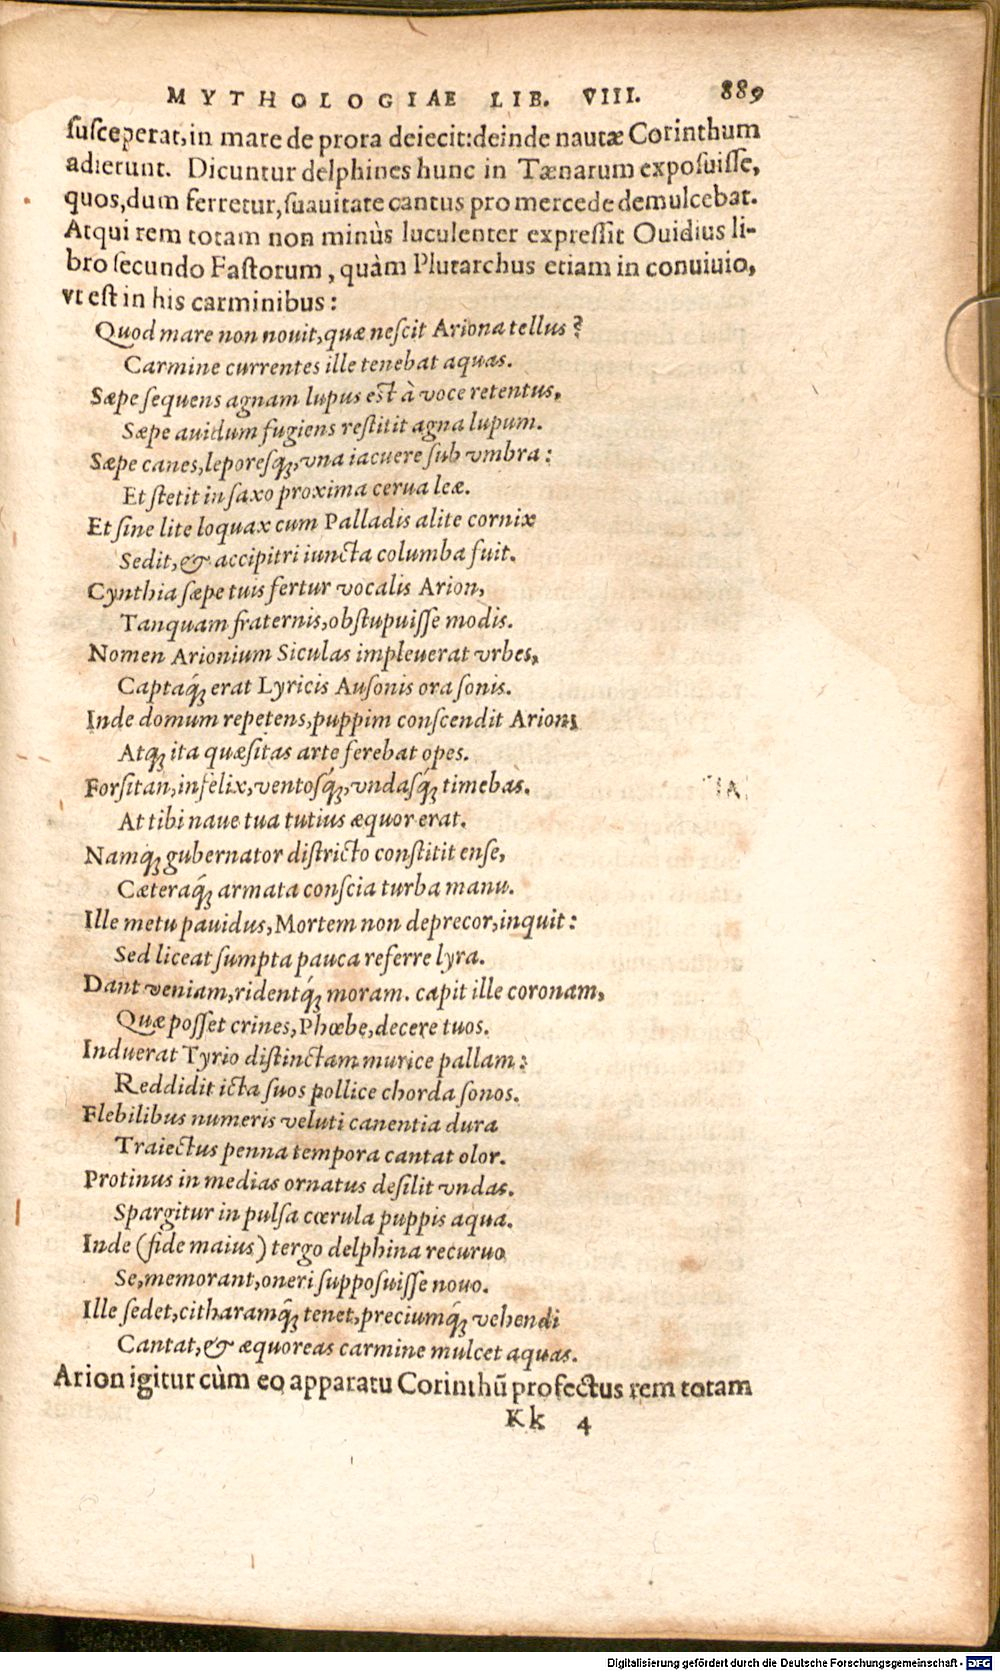 MYTHOLOGIAE LIB. VIII. 889
ſuſceperat, in mare de prora deiecit: deinde nautæ Corinthum
adierunt. Dicuntur delphines hunc in Tænarum expoſuiſſe,
quos, dum ferretur, ſuauitate cantus pro mercede demulcebat.
Atqui rem totam non minùs luculenter expreſſit Ouidius li-
bro ſecundo Faſtorum, quàm Plutarchus etiam in conuiuio,
vt eſt in his carminibus:
Quod mare non nouit, quæ neſcit Ariona tellus?
Carmine currentes ille tenebat aquas.
Sæpe ſequens agnam lupus eſt à voce retentus,
Sæpe auidum fugiens reſtitit agna lupum.
Sæpe canes, leporesq́;, vna iacuere ſub vmbra:
Et ſtetit in ſaxo proxima cerua leæ.
Et ſine lite loquax cum Palladis alite cornix
Sedit, & accipitri iuncta columba fuit.
Cynthia ſæpe tuis fertur vocalis Arion,
Tanquam fraternis, obſtupuiſſe modis.
Nomen Arionium Siculas impleuerat vrbes,
Captaq́; erat Lyricis Auſonis ora ſonis.
Inde domum repetens, puppim conſcendit Arion;
Atq; ita quæſitas arte ferebat opes.
Forſitan, infelix, ventosq́;, vndasq́; timebas.
At tibi naue tua tutius æquor erat.
Namq; gubernator diſtricto conſtitit enſe,
Cæteraq́; armata conſcia turba manu.
Ille metu pauidus, Mortem non deprecor, inquit:
Sed liceat ſumpta pauca referre lyra.
Dant veniam, ridentq́; moram. capit ille coronam,
Quæ poſſet crines, Phœbe, decere tuos.
Induerat Tyrio diſtinctam murice pallam:
Reddidit icta ſuos pollice chorda ſonos.
Flebilibus numeris veluti canentia dura
Traiectus penna tempora cantat olor.
Protinus in medias ornatus deſilit vndas.
Spargitur inpulſa cœrula puppis aqua.
Inde (fide maius) tergo delphina recuruo
Se, memorant, oneri ſuppoſuiſſe nouo.
Ille ſedet, citharamq́; tenet, preciumq́; vehendi
Cantat, & æquoreas carmine mulcet aquas.
Arion igitur cùm eo apparatu Corinthũ profectus rem totam
Kk 4
Digitalisierung gefördert durch die Deutsche Forschungsgemeinschaft - DFG